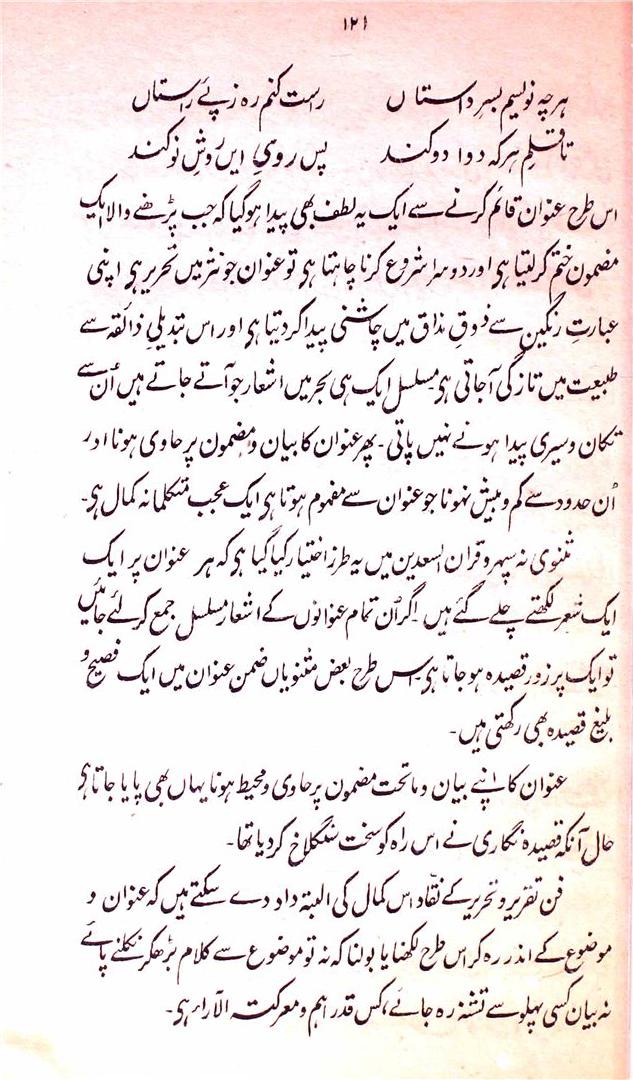 ۱۲۱
ہرچہ نویسم بسر داستاں راست کنم رہ ز پئے راستاں
تا قلمِ ہرکہ دوا دو کند پس رویِ ایں روشِ نو کند
اس طرح عنوان قائم کرنے سے ایک یہ لطف بھی پیدا ہوگیا کہ جب پڑھنے والا ایک
مضمون ختم کرلیتا ہی اور دوسرا شروع کرنا چاہتا ہی تو عنوان جو نثر میں تحریر ہی اپنی
عبارتِ رنگین سے ذوقِ مذاق میں چاشنی پیدا کردیتا ہی اور اس تبدیلِ ذائقہ سے
طبیعت میں تازگی آجاتی ہی۔ مسلسل ایک ہی بحر میں اشعار جو آتے جاتے ہیں اُن سے
تکان و سیری پیدا ہونے نہیں پاتی۔ پھر عنوان کا بیان و مضمون پر حاوی ہونا اور
اُن حدود سے کم و بیش نہونا جو عنوان سے مفہوم ہوتا ہی ایک عجب متکلمانہ کمال ہی۔
مثنوی نہ سپہر و قران السعدین میں یہ طرز اختیار کیا گیا ہی کہ ہر عنوان پر ایک
ایک شعر لکھتے چلے گئے ہیں۔ اگر اُن تمام عنوانوں کے اشعار مسلسل جمع کرلئے جائیں
تو ایک پر زور قصیدہ ہوجاتا ہی۔ اس طرح بعض مثنویاں ضمن عنوان میں ایک فصیح و
بلیغ قصیدہ بھی رکھتی ہیں۔
عنوان کا اپنے بیان و ماتحت مضمون پر حاوی و محیط ہونا یہاں بھی پایا جاتا ہی
حال آنکہ قصیدہ نگاری نے اس راہ کو سخت سنگلاخ کردیا تھا۔
فن تقریر و تحریر کے نقّاد اس کمال کی البتہ داد دے سکتے ہیں کہ عنوان و
موضوع کے اندر رہ کر اس طرح لکھنا یا بولنا کہ نہ تو موضوع سے کلام بڑھکر نکلنے پائے
نہ بیان کسی پہلو سے تشنہ رہ جائے، کس قدر اہم و معرکتہ الآراء ہی۔